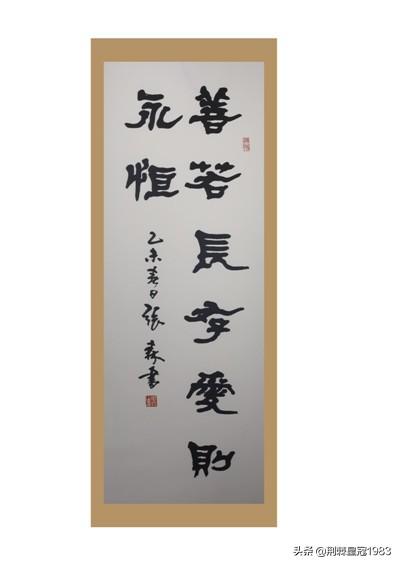 善若長存愛則
永恒
乙未春日張森書
头条 @荆棘皇冠1983